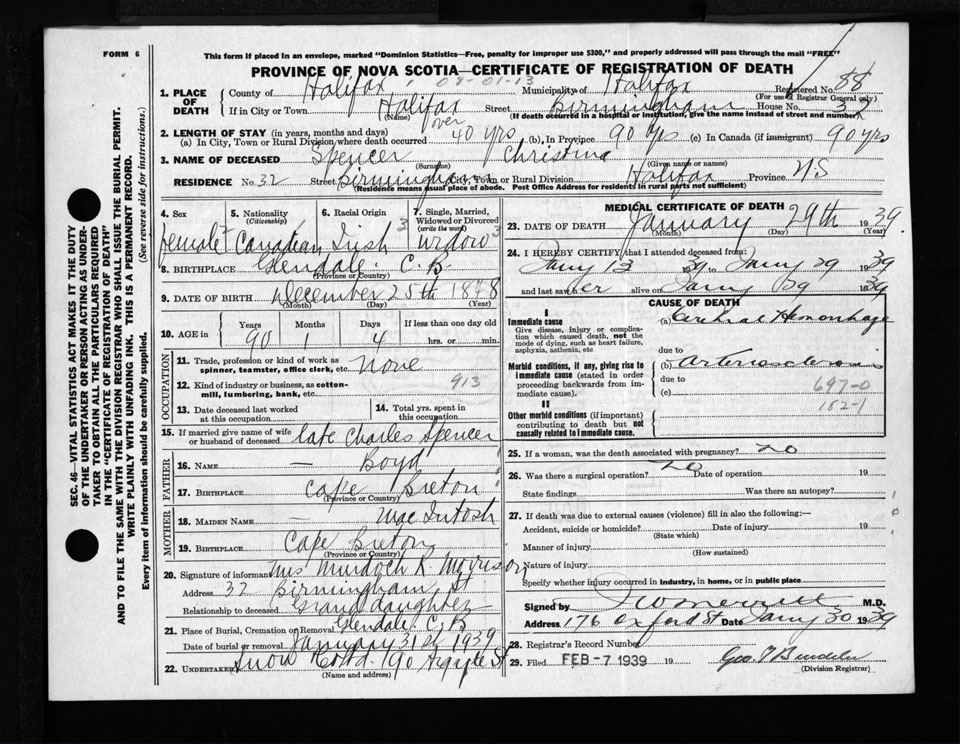 FORM 6
This form if placed in an envelope, marked "Dominion Statistics—Free, penalty for improper use $300," and properly addressed will pass through the mail "FREE"
PROVINCE OF NOVA SCOTIA—CERTIFICATE OF REGISTRATION OF DEATH
1. PLACE OF DEATH County of Halifax 09-01-13 Municipality of Halifax Registered No. 88
(For use of Registrar General only)
If in City or Town Halifax Street Birmingham House No. 32
(Name) (If death occurred in a hospital or institution, give the name instead of street and number)
2. LENGTH OF STAY (in years, months and days)
(a) In City, Town or Rural Division where death occurred over 40 yrs (b) In Province 90 yrs (c) In Canada (if immigrant) 90 yrs
3. NAME OF DECEASED Spencer Christina
(Surname) (Given name or names)
RESIDENCE No. 32 Street Birmingham St City, Town or Rural Division Halifax Province NS
(Residence means usual place of abode. Post Office Address for residents in rural parts not sufficient)
4. Sex 5. Nationality (Citizenship) 6. Racial Origin 7. Single, Married, Widowed or Divorced (write the word)
female 2 Canadian Irish 3 widow 3
8. BIRTHPLACE Glendale C.B
(Province or Country)
9. DATE OF BIRTH December 25th 1848
(Month) (Day) (Year)
10. AGE in Years Months Days If less than one day old
90 1 4 hrs. or min.
OCCUPATION
11. Trade, profession or kind of work as spinner, teamster, office clerk, etc. None
12. Kind of industry or business, as cotton-mill, lumbering, bank, etc. 913
13. Date deceased last worked at this occupation
14. Total yrs. spent in this occupation
15. If married give name of wife or husband of deceased late Charles Spencer
FATHER
16. NAME — Boyd
17. BIRTHPLACE Cape Breton
(Province or Country)
MOTHER
18. MAIDEN NAME — MacIntosh
19. BIRTHPLACE Cape Breton
(Province or Country)
20. Signature of informant Mrs Murdoch R. Morrison
Address 32 Birmingham St
Relationship to deceased Granddaughter
21. Place of Burial, Cremation or Removal Glendale C.B
Date of burial or removal January 31st 1939
22. UNDERTAKER Snow & Co Ltd 190 Argyle St
(Name and address)
MEDICAL CERTIFICATE OF DEATH
23. DATE OF DEATH January 29th 1939
(Month) (Day) (Year)
24. I HEREBY CERTIFY that I attended deceased from:
Jany 13 1939 to Jany 29 1939
and last saw her alive on Jany 29 1939
CAUSE OF DEATH
I
Immediate cause (a) Cerebral Hemorrhage
Give disease, injury or complication which caused death, not the mode of dying, such as heart failure, asphyxia, asthenia, etc
due to
Morbid conditions, if any, giving rise to immediate cause (stated in order proceeding backwards from immediate cause) (b) Arteriosclerosis
due to
(c) 697-0
162-1
II
Other morbid conditions (if important) contributing to death but not causally related to immediate cause.
25. If a woman, was the death associated with pregnancy? no
26. Was there a surgical operation? no Date of operation 19
State findings Was there an autopsy?
27. If death was due to external causes (violence) fill in also the following:—
Accident, suicide or homicide? Date of injury 19
(State which)
Manner of injury
(How sustained)
Nature of injury
Specify whether injury occurred in industry, in home, or in public place
Signed by M.D.
Address 176 Oxford St Date Jany 30 1939
28. Registrar's Record Number
29. Filed FEB -7 1939 19
(Division Registrar)
SEC. 46—VITAL STATISTICS ACT MAKES IT THE DUTY
OF THE UNDERTAKER OR PERSON ACTING AS UNDER-
TAKER TO OBTAIN ALL THE PARTICULARS REQUIRED
IN THE "CERTIFICATE OF REGISTRATION OF DEATH"
AND TO FILE THE SAME WITH THE DIVISION REGISTRAR WHO SHALL ISSUE THE BURIAL PERMIT.
WRITE PLAINLY WITH UNFADING INK. THIS IS A PERMANENT RECORD.
Every item of information should be carefully supplied. (See reverse side for instructions.)